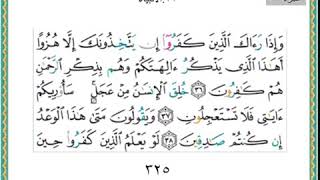 وَإِذَا رَءَاكَ ٱلَّذِينَ كَفَرُوٓا۟ إِن يَتَّخِذُونَكَ إِلَّا هُزُوًا
أَهَٰذَا ٱلَّذِى يَذْكُرُ ءَالِهَتَكُمْ وَهُم بِذِكْرِ ٱلرَّحْمَٰنِ
هُمْ كَٰفِرُونَ ٣٦ خُلِقَ ٱلْإِنسَٰنُ مِنْ عَجَلٍ سَأُو۟رِيكُمْ
ءَايَٰتِى فَلَا تَسْتَعْجِلُونِ ٣٧ وَيَقُولُونَ مَتَىٰ هَٰذَا ٱلْوَعْدُ
إِن كُنتُمْ صَٰدِقِينَ ٣٨ لَوْ يَعْلَمُ ٱلَّذِينَ كَفَرُوا۟ حِينَ
٣٢٥